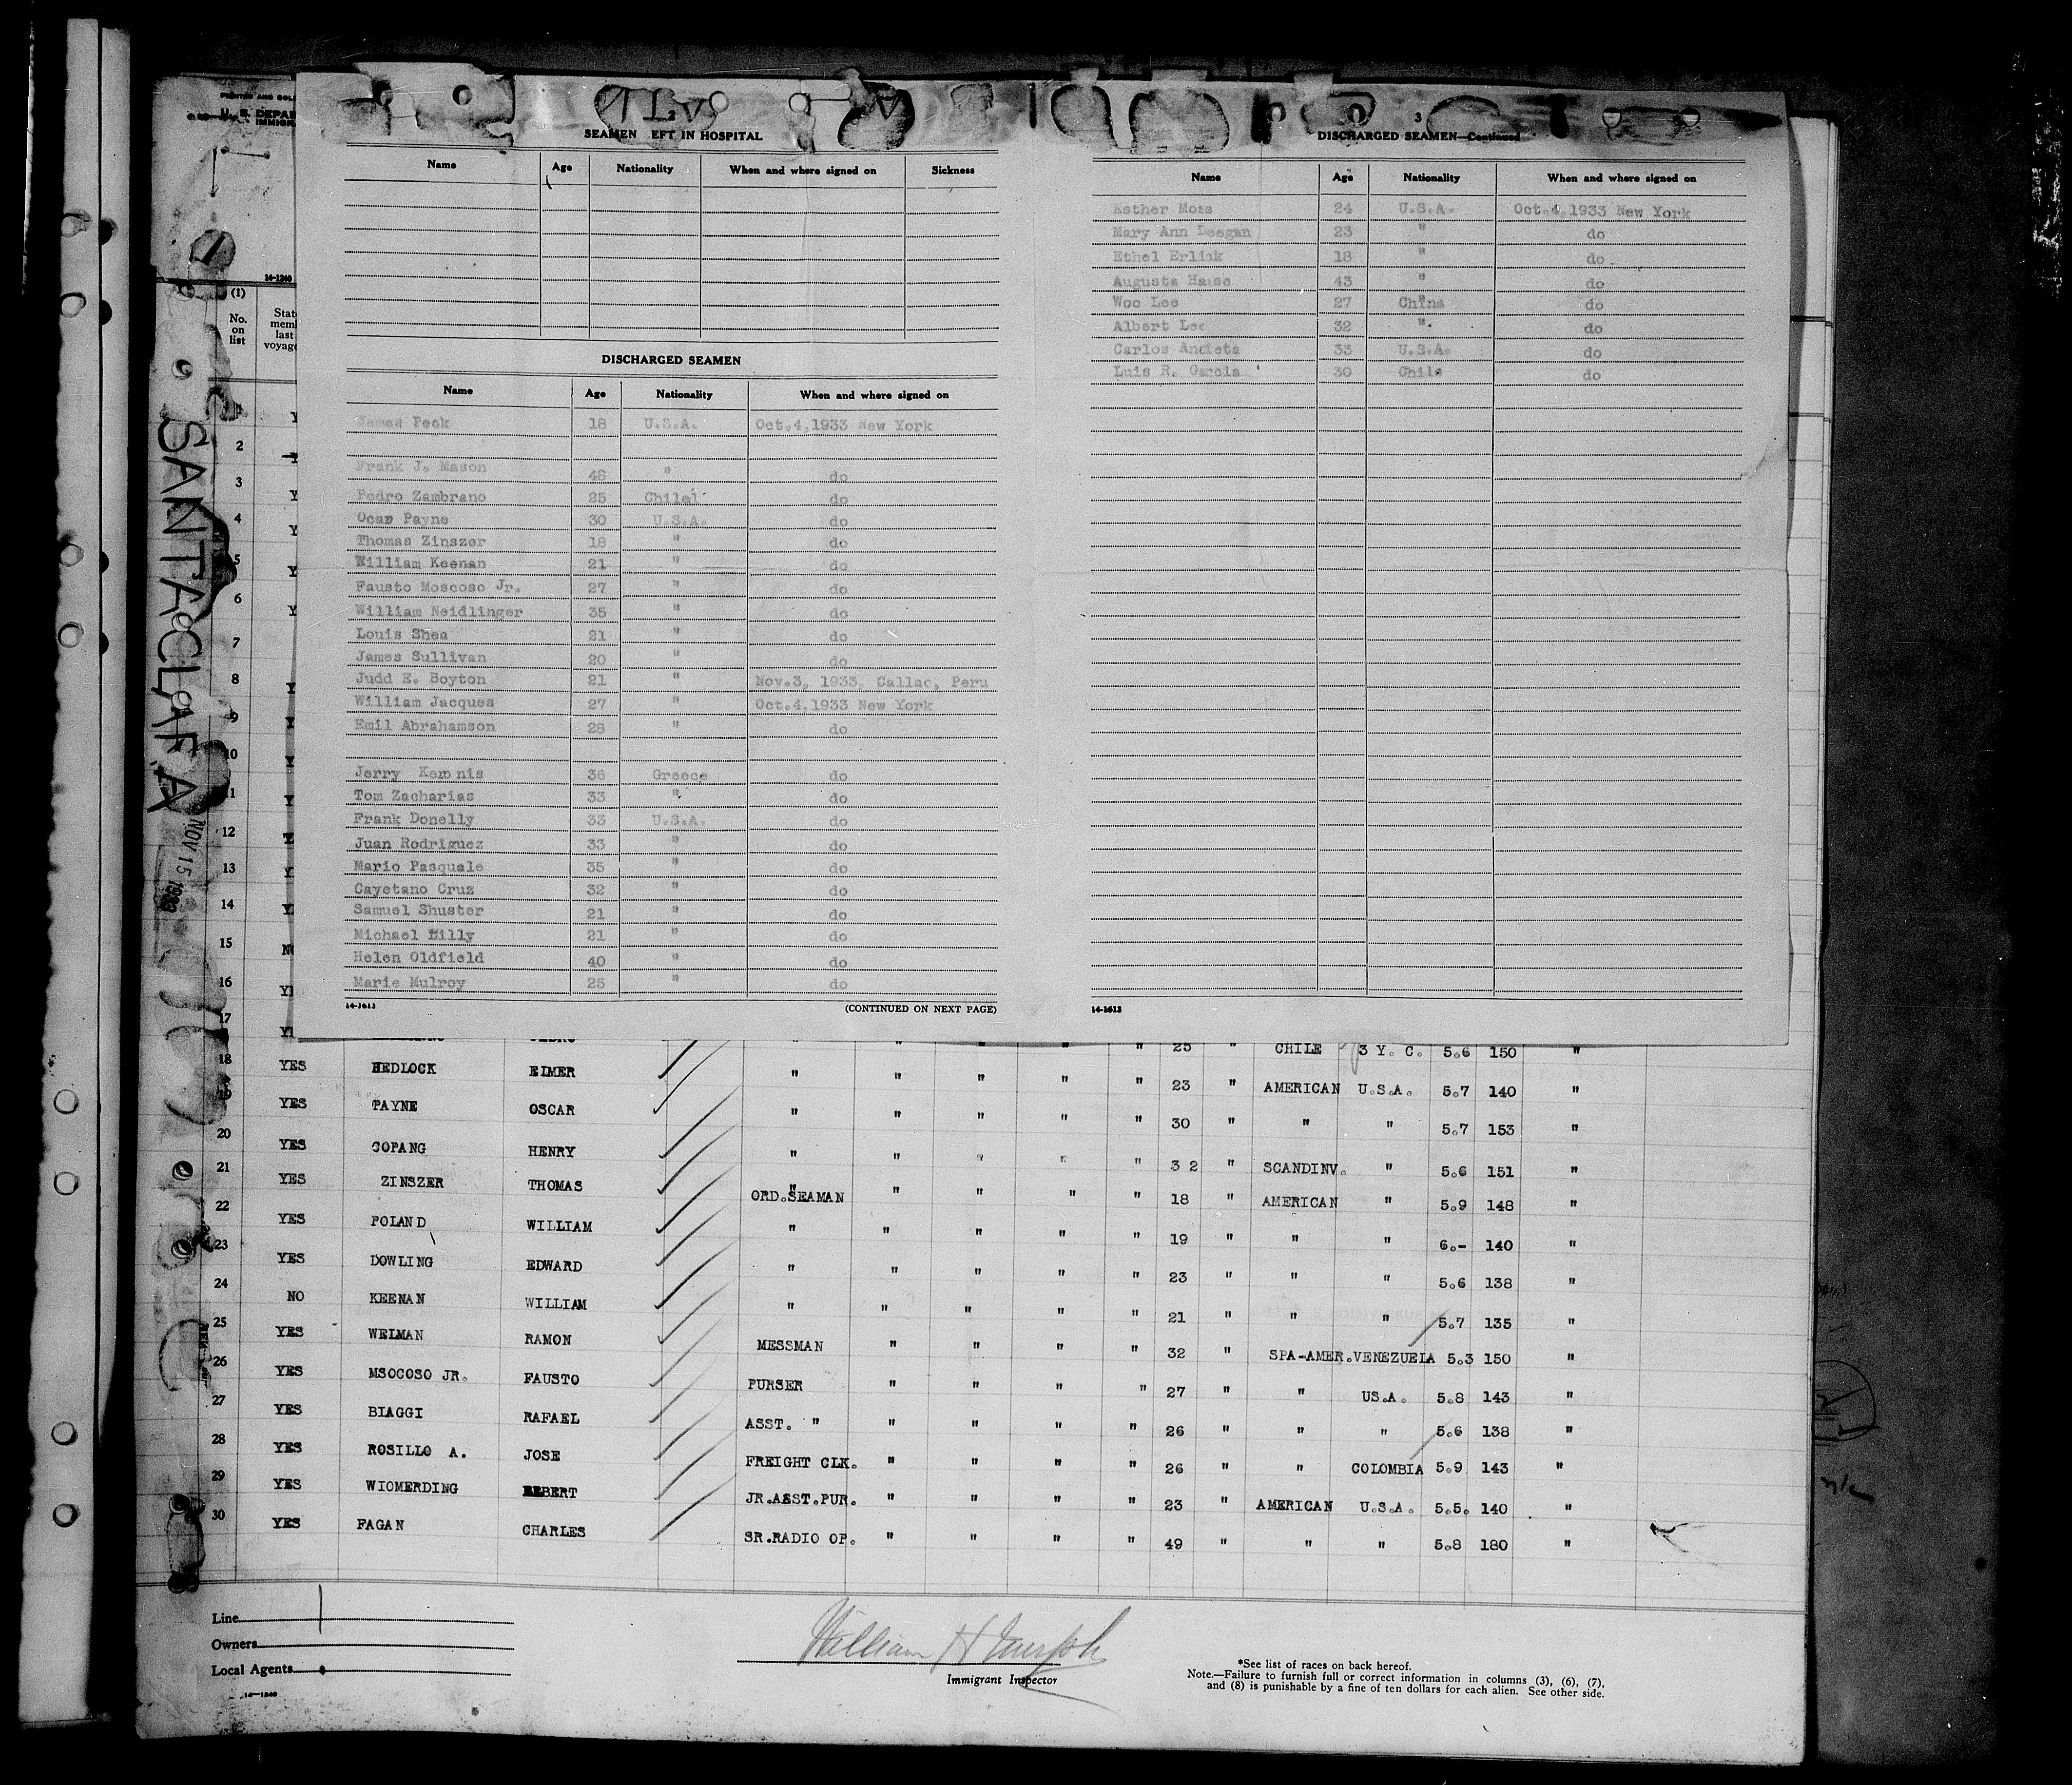 SANTA CLARA
NOV 15 1933
14-1240
(1)
No.
on
list
2
SEAMEN EFT IN HOSPITAL
Name Age Nationality When and where signed on Sickness
DISCHARGED SEAMEN
Name Age Nationality When and where signed on
James Peck 18 U.S.A. Oct.4,1933 New York
Frank J. Mason 48 " do
Pedro Zambrano 25 Chile do
Ocar Payne 30 U.S.A. do
Thomas Zinszer 18 " do
William Keenan 21 " do
Fausto Moscoso Jr. 27 " do
William Neidlinger 35 " do
Louis Shea 21 " do
James Sullivan 20 " do
Judd E. Boyton 21 " Nov.3, 1933, Callao, Peru
William Jacques 27 " Oct.4,1933 New York
Emil Abrahamson 28 " do
Jerry 36 Greece do
Tom Zacharias 33 " do
Frank Donelly 33 U.S.A. do
Juan Rodriguez 33 " do
Mario Pasquale 35 " do
Cayetano Cruz 32 " do
Samuel Shuster 21 " do
Michael Lilly 21 " do
Helen Oldfield 40 " do
Marie Mulroy 25 " do
14-1613 (CONTINUED ON NEXT PAGE)
3
DISCHARGED SEAMEN—Continued
Name Age Nationality When and where signed on
Esther Moss 24 U.S.A. Oct.4,1933 New York
Mary Ann Deegan 23 " do
Ethel Erlick 18 " do.
Augusta Haase 43 " do
Woo Lee 27 China do
Albert Lee 32 " do
Carlos Andieta 33 U.S.A. do
Luis R. Garcia 30 Chile do
14-1613
25 " CHILE 3 Y. C. 5.6 150 "
18 YES HEDLOCK ELMER " " " " " 23 " AMERICAN U.S.A. 5.7 140 "
19 YES PAYNE OSCAR " " " " " 30 " " " 5.7 153 "
20 YES COPANG HENRY " " " " " 3 2 " SCANDINV. " 5.6 151 "
21 YES ZINSZER THOMAS ORD.SEAMAN " " " " 18 " AMERICAN " 5.9 148 "
22 YES POLAND WILLIAM " " " " " 19 " " " 6.- 140 "
23 YES DOWLING EDWARD " " " " " 23 " " " 5.6 138 "
24 NO KEENAN WILLIAM " " " " " 21 " " " 5.7 135 "
25 YES WEIMAN RAMON MESSMAN " " " " 32 " SPA-AMER. VENEZUELA 5.3 150 "
26 YES MSOCOSO JR. FAUSTO PURSER " " " " 27 " " US.A. 5.8 143 "
27 YES BIAGGI RAFAEL ASST. " " " " " 26 " " " 5.6 138 "
28 YES ROSILLO A. JOSE FREIGHT CLK. " " " " 26 " " COLOMBIA 5.9 143 "
29 YES WIOMERDING JR.ASST.PUR. " " " " 23 " AMERICAN U.S.A. 5.5. 140 "
30 YES FAGAN CHARLES SR.RADIO OP. " " " " 49 " " " 5.8 180 "
Line
Owners
Local Agents
14-1240
William H Murphy
Immigrant Inspector
*See list of races on back hereof.
Note.—Failure to furnish full or correct information in columns (3), (6), (7),
and (8) is punishable by a fine of ten dollars for each alien. See other side.